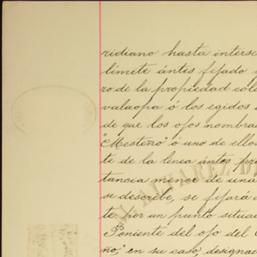 ridiano hasta interse
límite ántes fijado
ro de la propiedad col
valaopa ó los egidos
de que los ojos nombra
"Mesteño" ó uno de ello
te de la linea ántes pro
tancia menor de una
se describe, se fijará
te por un punto situa
Poniente del ojo del
ño," en su caso, designa